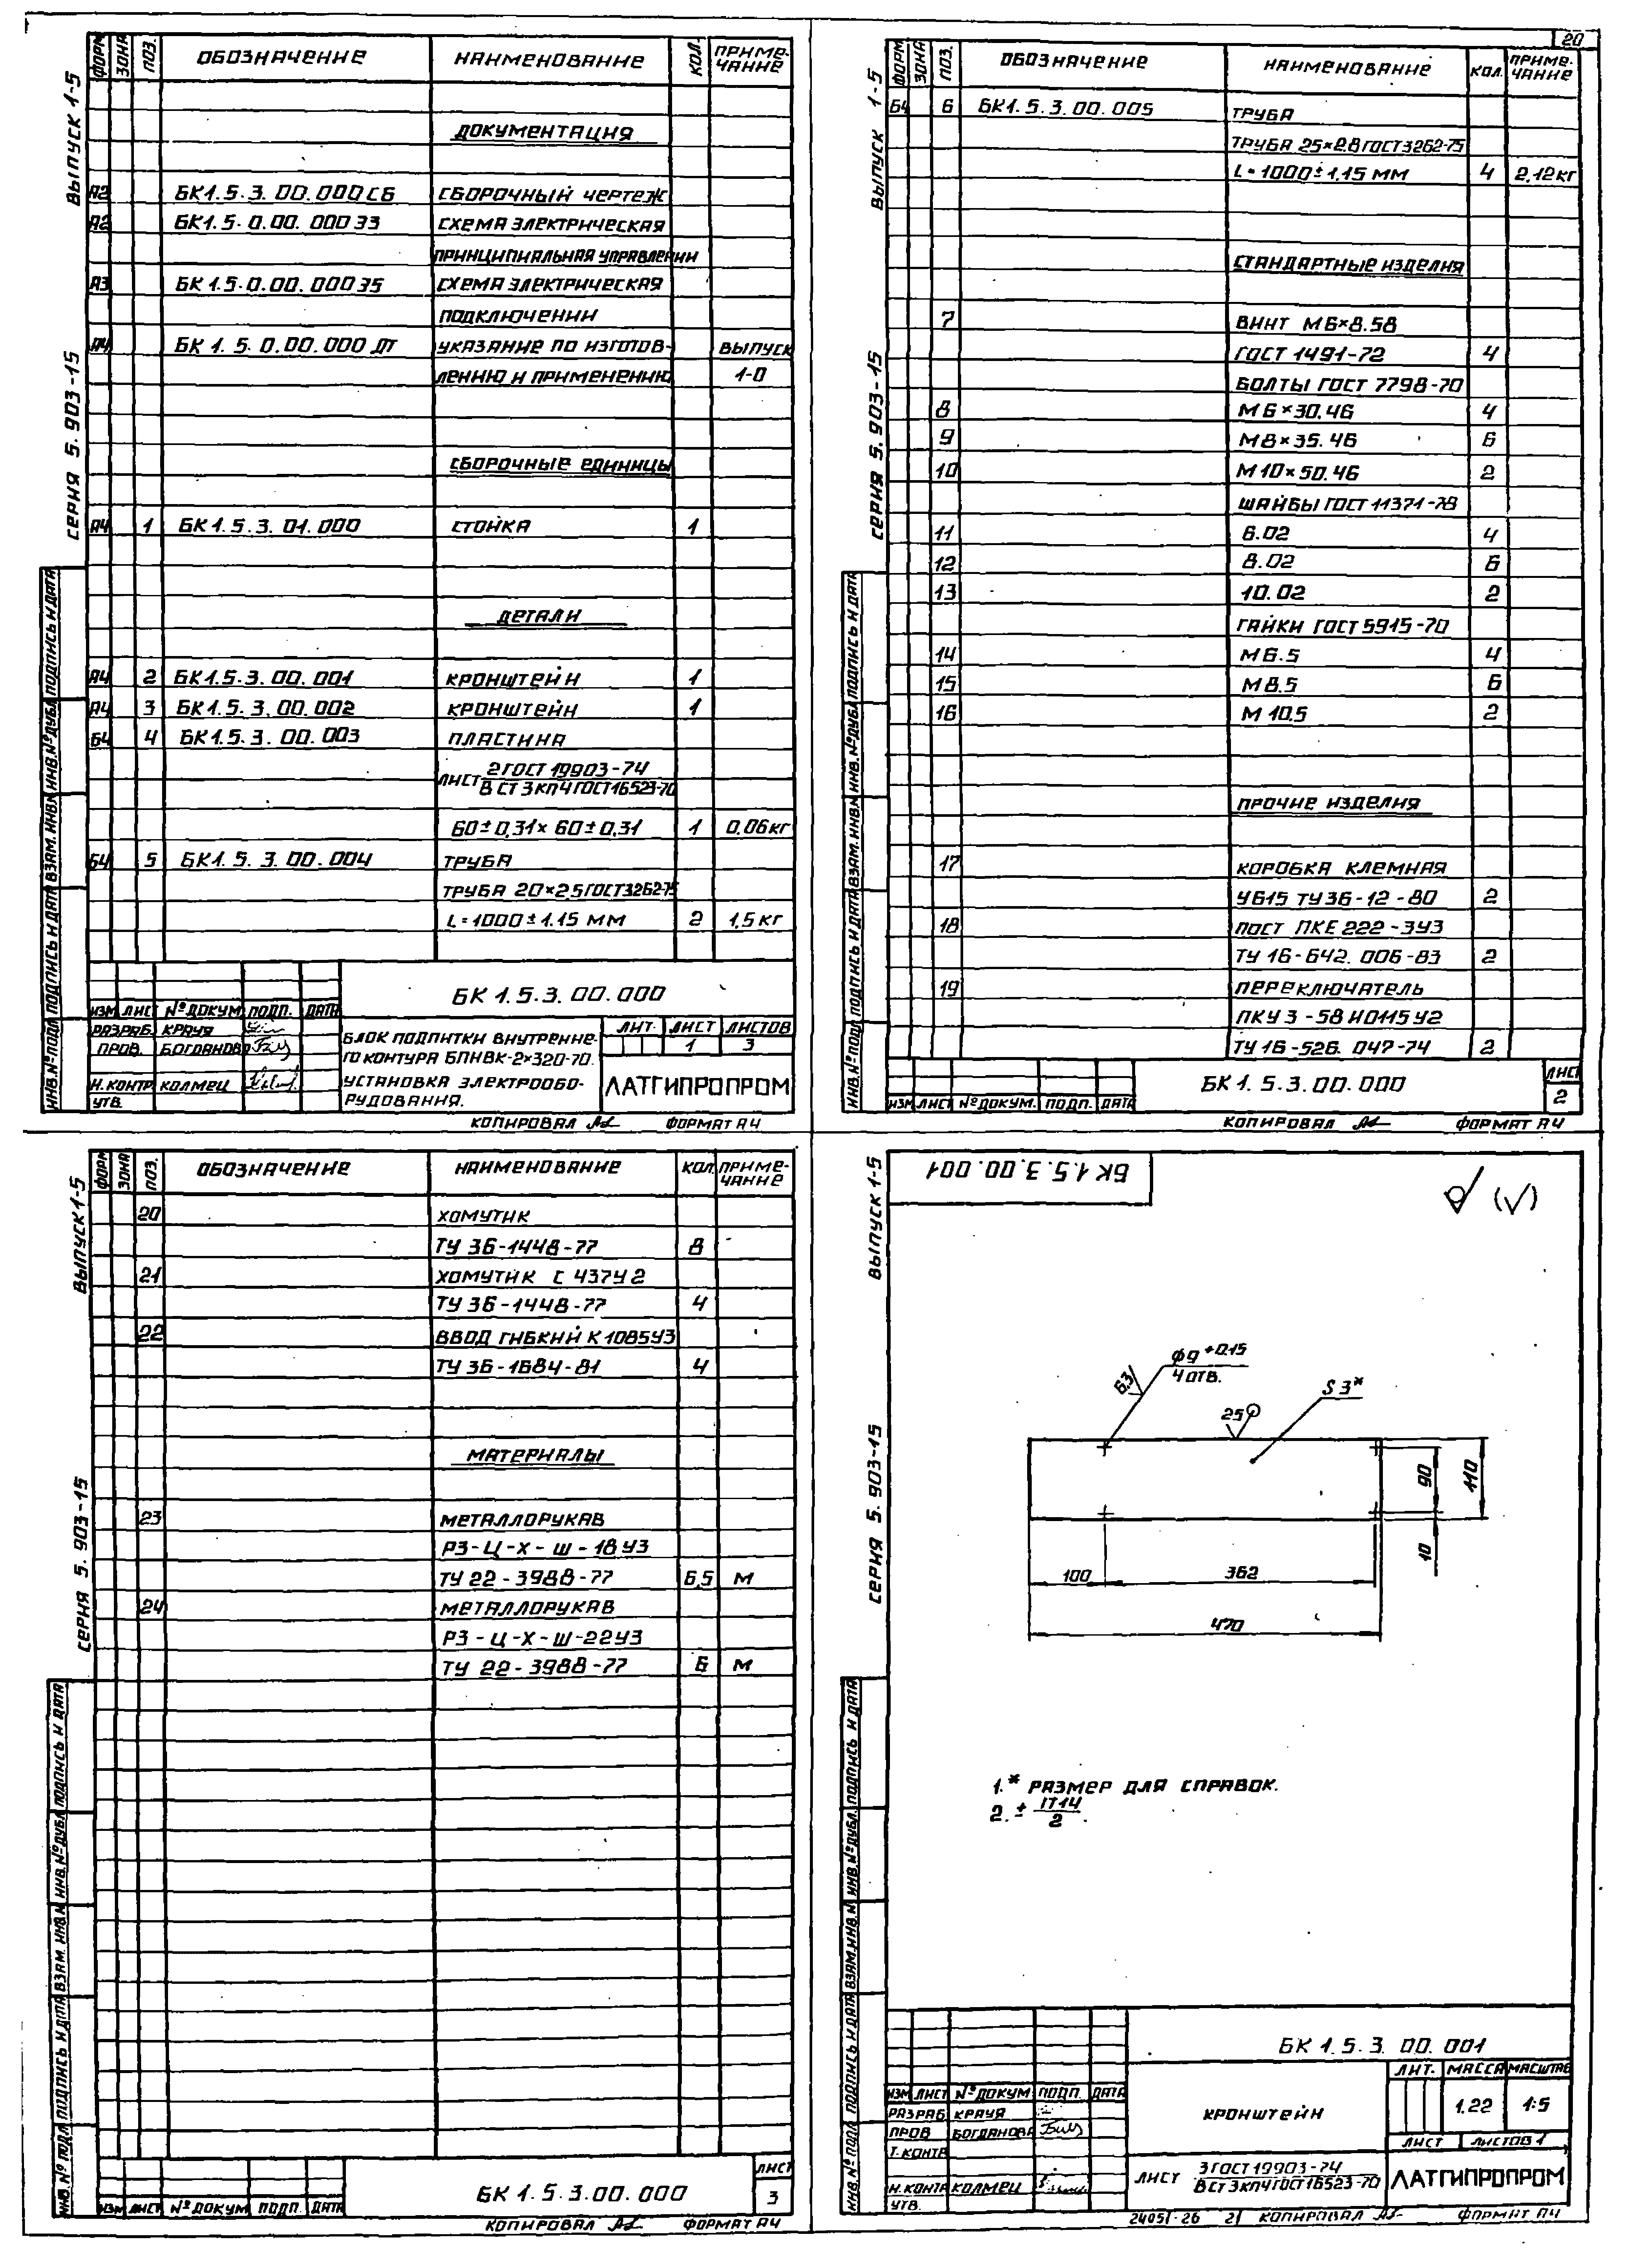 20
ВЫПУСК 1-5
СЕРИЯ 5.903-15
ФОРМ ЗОНА ПОЗ. ОБОЗНАЧЕНИЕ НАИМЕНОВАНИЕ КОЛ. ПРИМЕ-ЧАНИЕ
ДОКУМЕНТАЦИЯ
А2 БК1.5.3.00.000СБ СБОРОЧНЫЙ ЧЕРТЕЖ
А2 БК1.5.0.00.000 Э3 СХЕМА ЭЛЕКТРИЧЕСКАЯ
ПРИНЦИПИАЛЬНАЯ УПРАВЛЕНИИ
А3 БК1.5.0.00.000 Э5 СХЕМА ЭЛЕКТРИЧЕСКАЯ
ПОДКЛЮЧЕНИИ
А4 БК1.5.0.00.000 ДТ УКАЗАНИЕ ПО ИЗГОТОВ- ВЫПУСК
ЛЕНИЮ И ПРИМЕНЕНИЮ 1-0
СБОРОЧНЫЕ ЕДИНИЦЫ
А4 1 БК1.5.3.01.000 СТОЙКА 1
ДЕТАЛИ
А4 2 БК1.5.3.00.001 КРОНШТЕЙН 1
А4 3 БК1.5.3.00.002 КРОНШТЕЙН 1
Б4 4 БК1.5.3.00.003 ПЛАСТИНА
ЛИСТ 2 ГОСТ 19903-74
В СТ 3 КП4 ГОСТ 16523-70
60±0,31×60±0,31 1 0,06 кг
Б4 5 БК1.5.3.00.004 ТРУБА
ТРУБА 20×2.5 ГОСТ 3262-75
L=1000±1.15 ММ 2 1,5 кг
БК 1.5.3.00.000
ИЗМ ЛИСТ №ДОКУМ. ПОДП. ДАТА
РАЗРАБ. КРАУЯ
ПРОВ. БОГДАНОВА
Н.КОНТР КОЛМЕЦ
УТВ.
БЛОК ПОДПИТКИ ВНУТРЕННЕ-
ГО КОНТУРА БПНВК-2×320-70.
УСТАНОВКА ЭЛЕКТРООБО-
РУДОВАНИЯ.
ЛИТ. ЛИСТ ЛИСТОВ
1 3
ЛАТГИПРОПРОМ
КОПИРОВАЛ ФОРМАТ А4
ПОДПИСЬ И ДАТА
ИНВ.№ДУБЛ
ВЗАМ.ИНВ.№
ПОДПИСЬ И ДАТА
ИНВ.№ПОДЛ
ВЫПУСК 1-5
СЕРИЯ 5.903-15
ФОРМ ЗОНА ПОЗ. ОБОЗНАЧЕНИЕ НАИМЕНОВАНИЕ КОЛ. ПРИМЕ-ЧАНИЕ
Б4 6 БК1.5.3.00.005 ТРУБА
ТРУБА 25×2.8 ГОСТ 3262-75
L=1000±1,15 ММ 4 2,12 кг
СТАНДАРТНЫЕ ИЗДЕЛИЯ
7 ВИНТ М6×8.58
ГОСТ 1491-72 4
БОЛТЫ ГОСТ 7798-70
8 М6×30.46 4
9 М8×35.46 6
10 М10×50.46 2
ШАЙБЫ ГОСТ 11371-78
11 6.02 4
12 8.02 6
13 10.02 2
ГАЙКИ ГОСТ 5915-70
14 М6.5 4
15 М8.5 6
16 М10.5 2
ПРОЧИЕ ИЗДЕЛИЯ
17 КОРОБКА КЛЕМНАЯ
У615 ТУ36-12-80 2
18 ПОСТ ПКЕ 222-3У3
ТУ 16-642.006-83 2
19 ПЕРЕКЛЮЧАТЕЛЬ
ПКУ3-58И0115У2
ТУ 16-526.047-74 2
БК 1.5.3.00.000
ЛИСТ
2
ИЗМ ЛИСТ №ДОКУМ. ПОДП. ДАТА
КОПИРОВАЛ ФОРМАТ А4
ПОДПИСЬ И ДАТА
ИНВ.№ДУБЛ
ВЗАМ.ИНВ.№
ПОДПИСЬ И ДАТА
ИНВ.№ПОДЛ
ВЫПУСК 1-5
СЕРИЯ 5.903-15
ФОРМ ЗОНА ПОЗ. ОБОЗНАЧЕНИЕ НАИМЕНОВАНИЕ КОЛ. ПРИМЕ-ЧАНИЕ
20 ХОМУТИК
ТУ 36-1448-77 8
21 ХОМУТИК С 437У2
ТУ 36-1448-77 4
22 ВВОД ГИБКИЙ К1085У3
ТУ 36-1684-81 4
МАТЕРИАЛЫ
23 МЕТАЛЛОРУКАВ
РЗ-Ц-Х-Ш-18У3
ТУ 22-3988-77 6,5 М
24 МЕТАЛЛОРУКАВ
РЗ-Ц-Х-Ш-22У3
ТУ 22-3988-77 6 М
БК 1.5.3.00.000
ЛИСТ
3
ИЗМ ЛИСТ №ДОКУМ ПОДП. ДАТА
КОПИРОВАЛ ФОРМАТ А4
ПОДПИСЬ И ДАТА
ИНВ.№ДУБЛ
ВЗАМ.ИНВ.№
ПОДПИСЬ И ДАТА
ИНВ.№ПОДЛ
ВЫПУСК 1-5
СЕРИЯ 5.903-15
БК 1.5.3.00.001
(√)
φ9 +0.15
4 ОТВ.
6.3
25
S 3*
90
110
10
100
362
470
1.* РАЗМЕР ДЛЯ СПРАВОК.
2. ± IT14
2
БК 1.5.3.00.001
КРОНШТЕЙН
ЛИТ. МАССА МАСШТАБ
1.22 1:5
ЛИСТ ЛИСТОВ 1
ИЗМ ЛИСТ №ДОКУМ ПОДП. ДАТА
РАЗРАБ КРАУЯ
ПРОВ БОГДАНОВА
Т.КОНТР
Н.КОНТР КОЛМЕЦ
УТВ.
ЛИСТ 3 ГОСТ 19903-74
В СТ 3 КП4 ГОСТ 16523-70
ЛАТГИПРОПРОМ
24051-26 21 КОПИРОВАЛ ФОРМАТ А4
ПОДПИСЬ И ДАТА
ИНВ.№ДУБЛ
ВЗАМ.ИНВ.№
ПОДПИСЬ И ДАТА
ИНВ.№ПОДЛ